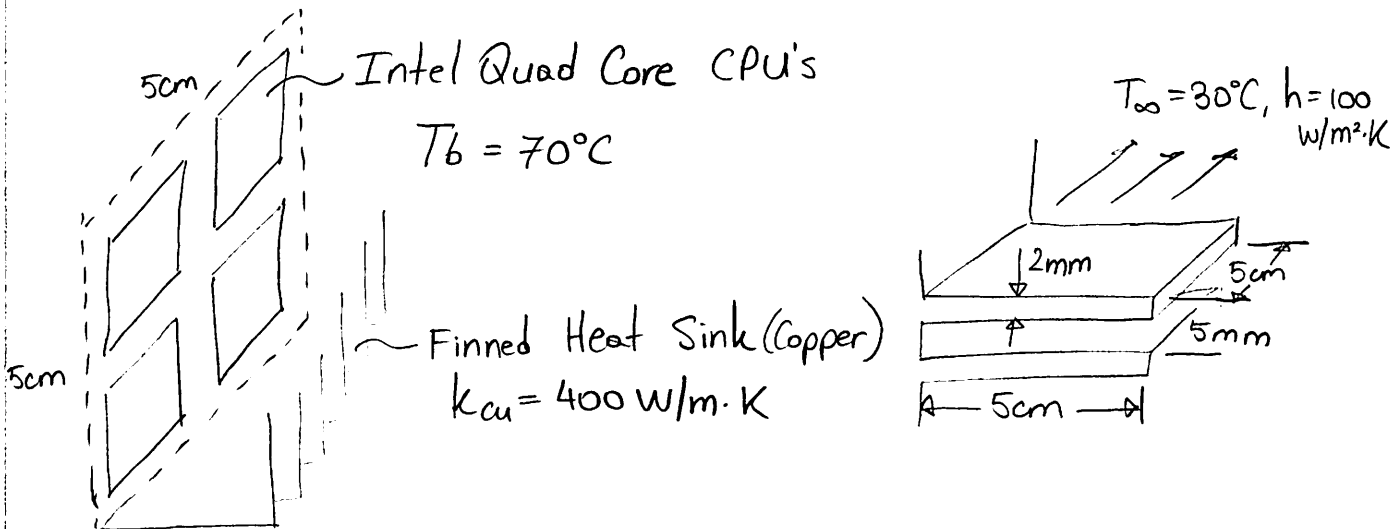 5cm
Intel Quad Core CPU's
Tb = 70°C
5cm
Finned Heat Sink (Copper)
kcu = 400 W/m·K
T∞ = 30°C, h = 100
W/m²·K
2mm
5cm
5mm
5cm